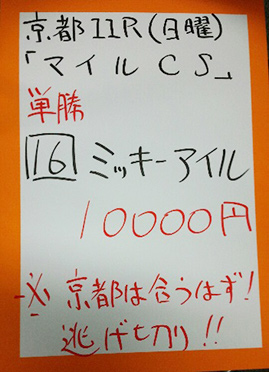 京都11R(日曜)
「マイルCS」
単勝
16 ミッキーアイル
10000円
※京都は合うはず!
逃げ切り!!